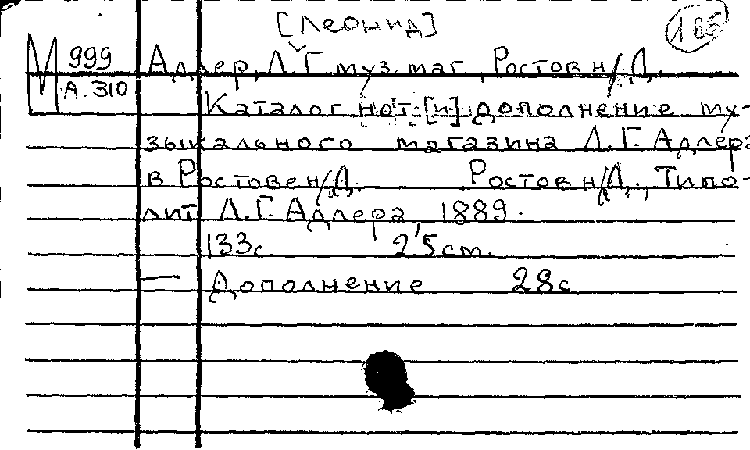 [Леонид]
185
М 999 Адлер, Л. Г. муз. маг., Ростов н/Д.
А. 310 Каталог нот [и] дополнение му-
зыкального магазина Л. Г. Адлера
в Ростове н/Д. Ростов н/Д., Типо-
лит. Л. Г. Адлера, 1889.
133с. 25 см.
— Дополнение 28с